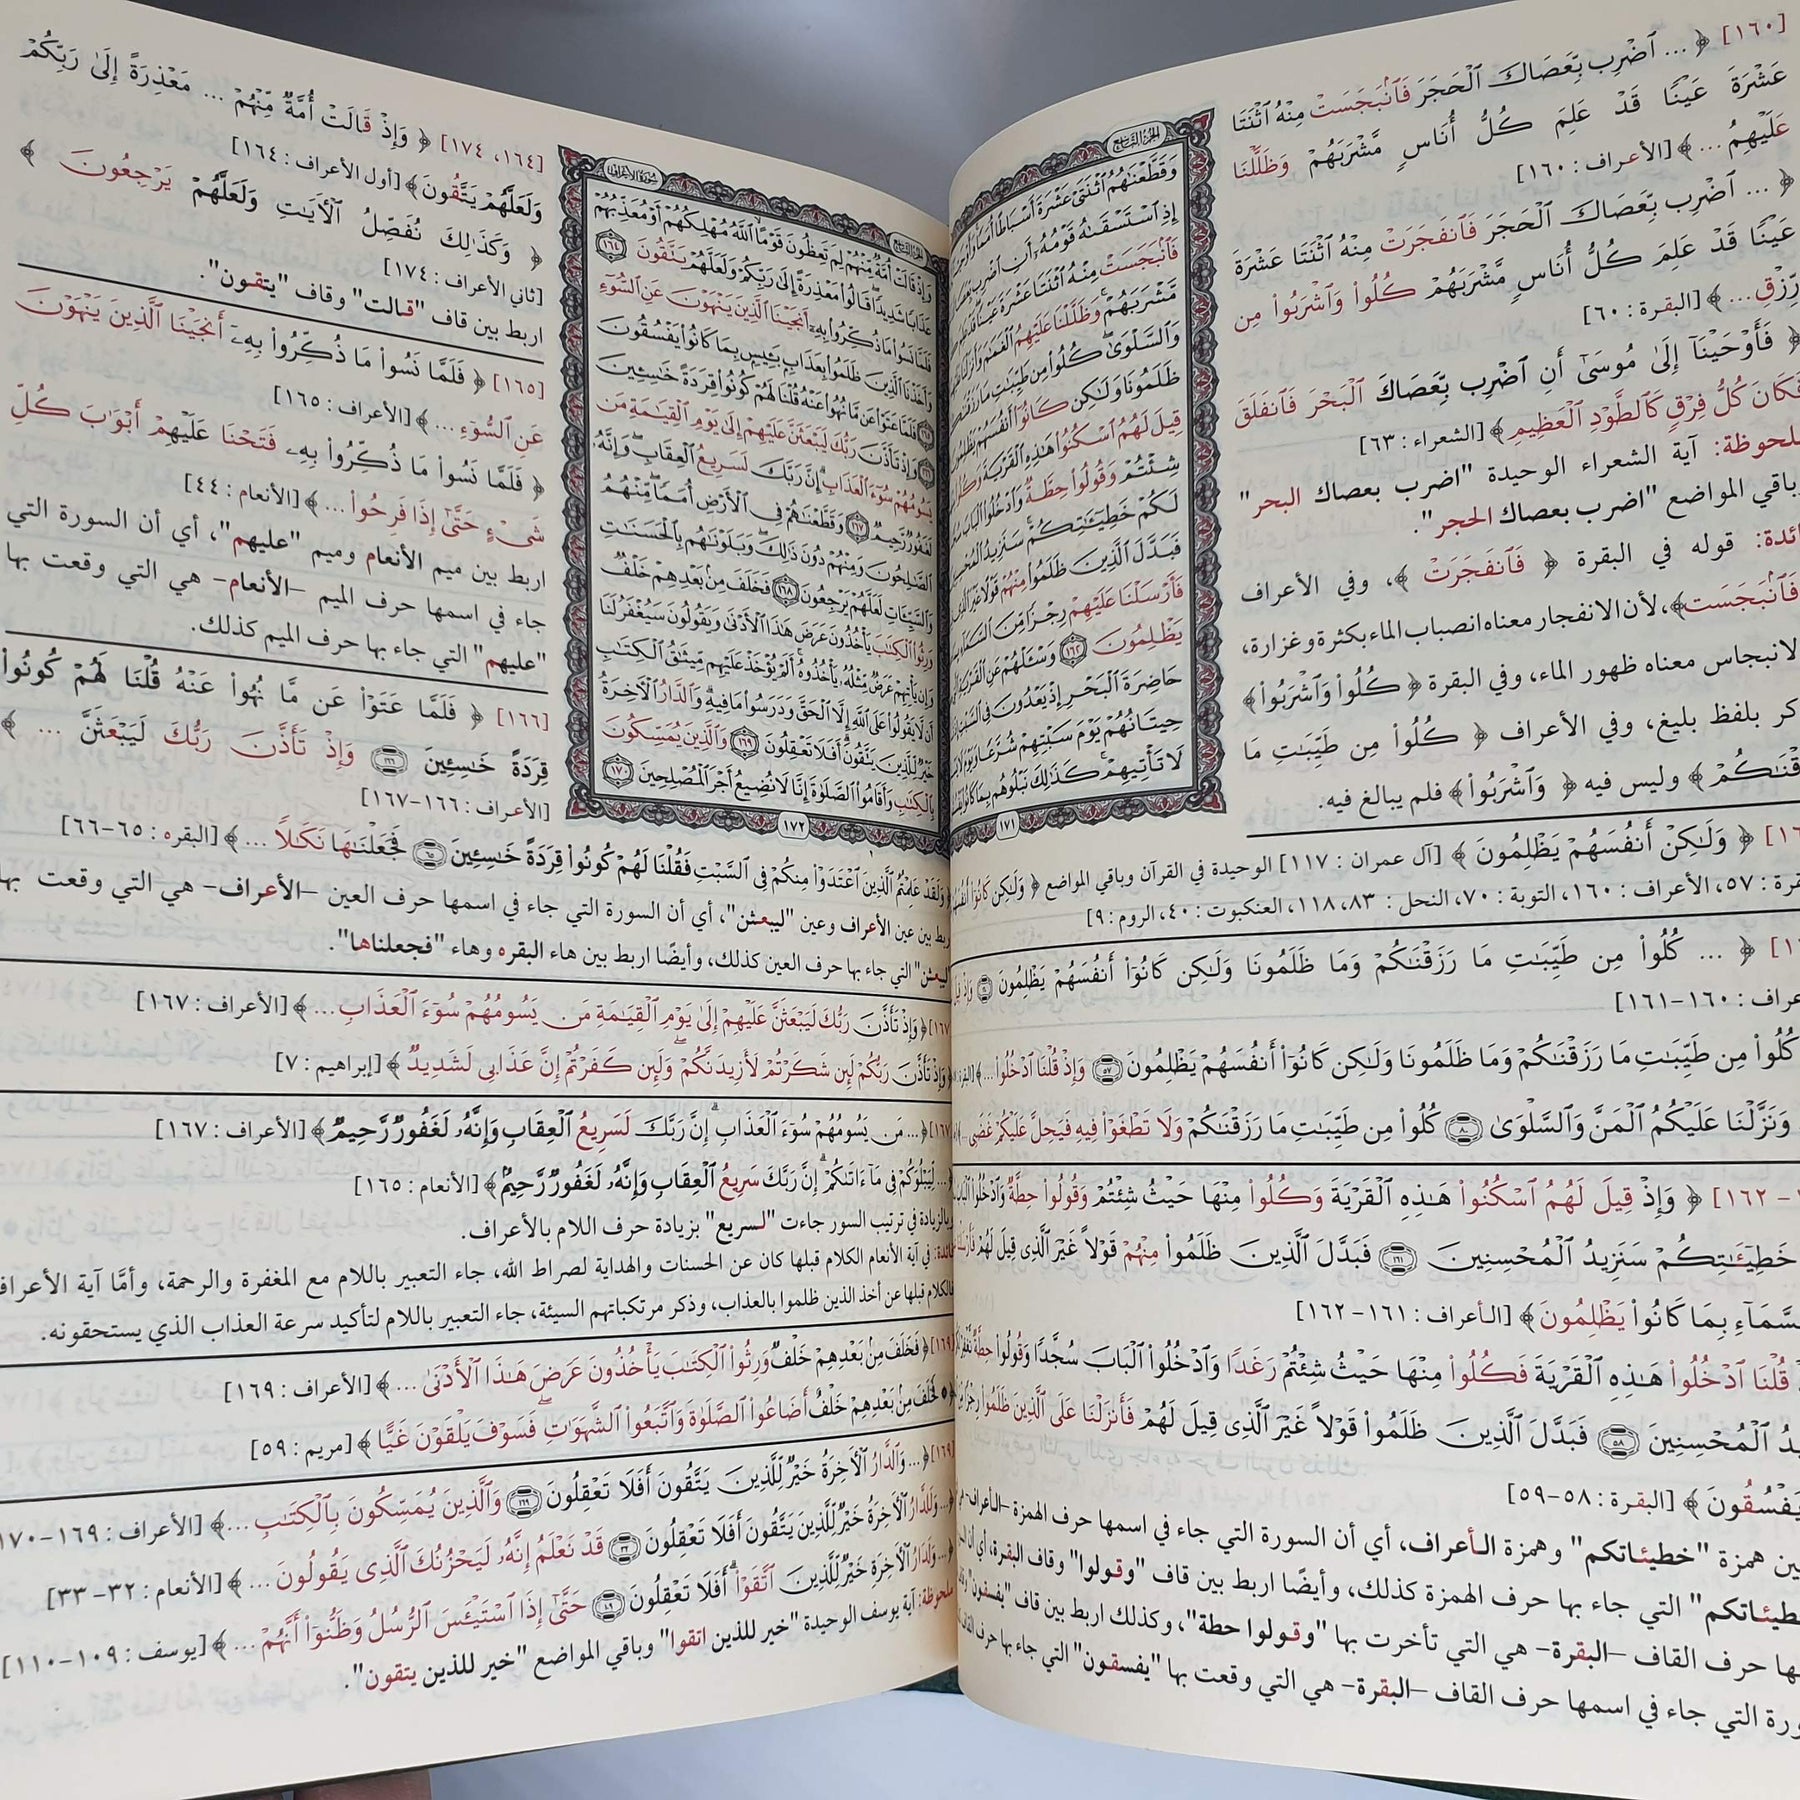 [١٦٠] ﴿ ... ٱضْرِب بِّعَصَاكَ ٱلْحَجَرَ فَٱنۢبَجَسَتْ مِنْهُ ٱثْنَتَا
عَشْرَةَ عَيْنًا قَدْ عَلِمَ كُلُّ أُنَاسٍ مَّشْرَبَهُمْ وَظَلَّلْنَا
عَلَيْهِمُ ... ﴾ [الأعراف : ١٦٠]
﴿ ... ٱضْرِب بِّعَصَاكَ ٱلْحَجَرَ فَٱنفَجَرَتْ مِنْهُ ٱثْنَتَا عَشْرَةَ
عَيْنًا قَدْ عَلِمَ كُلُّ أُنَاسٍ مَّشْرَبَهُمْ كُلُوا۟ وَٱشْرَبُوا۟ مِن
رِّزْقِ ... ﴾ [البقرة : ٦٠]
﴿ فَأَوْحَيْنَآ إِلَىٰ مُوسَىٰٓ أَنِ ٱضْرِب بِّعَصَاكَ ٱلْبَحْرَ فَٱنفَلَقَ
فَكَانَ كُلُّ فِرْقٍ كَٱلطَّوْدِ ٱلْعَظِيمِ ﴾ [الشعراء : ٦٣]
آية الشعراء الوحيدة "اضرب بعصاك البحر"
وباقي المواضع "اضرب بعصاك الحجر".
قوله في البقرة ﴿ فَٱنفَجَرَتْ ﴾، وفي الأعراف
﴿فَٱنۢبَجَسَتْ﴾، لأن الانفجار معناه انصباب الماء بكثرة وغزارة،
الانبجاس معناه ظهور الماء، وفي البقرة ﴿ كُلُوا۟ وَٱشْرَبُوا۟ ﴾
بلفظ بليغ، وفي الأعراف ﴿ كُلُوا۟ مِن طَيِّبَٰتِ مَا
وليس فيه ﴿ وَٱشْرَبُوا۟ ﴾ فلم يبالغ فيه.
الجزء التاسع
وَقَطَّعْنَٰهُمُ ٱثْنَتَىْ عَشْرَةَ أَسْبَاطًا أُمَمًا
إِذِ ٱسْتَسْقَىٰهُ قَوْمُهُۥٓ أَنِ ٱضْرِب
فَٱنۢبَجَسَتْ مِنْهُ ٱثْنَتَا عَشْرَةَ عَيْنًا
مَّشْرَبَهُمْ وَظَلَّلْنَا عَلَيْهِمُ ٱلْغَمَٰمَ
وَٱلسَّلْوَىٰ كُلُوا۟ مِن طَيِّبَٰتِ مَا
ظَلَمُونَا وَلَٰكِن كَانُوٓا۟ أَنفُسَهُمْ
قِيلَ لَهُمُ ٱسْكُنُوا۟ هَٰذِهِ ٱلْقَرْيَةَ
شِئْتُمْ وَقُولُوا۟ حِطَّةٌ وَٱدْخُلُوا۟ ٱلْبَابَ
لَكُمْ خَطِيٓـَٰٔتِكُمْ سَنَزِيدُ
فَبَدَّلَ ٱلَّذِينَ ظَلَمُوا۟ مِنْهُمْ قَوْلًا
فَأَرْسَلْنَا عَلَيْهِمْ رِجْزًا مِّنَ
يَظْلِمُونَ ١٦٢ وَسْـَٔلْهُمْ عَنِ ٱلْقَرْيَةِ
حَاضِرَةَ ٱلْبَحْرِ إِذْ يَعْدُونَ فِى
حِيتَانُهُمْ يَوْمَ سَبْتِهِمْ شُرَّعًا
لَا تَأْتِيهِمْ كَذَٰلِكَ نَبْلُوهُم
١٧١
﴿ وَلَٰكِنْ أَنفُسَهُمْ يَظْلِمُونَ ﴾ [آل عمران : ١١٧] الوحيدة في القرآن وباقي المواضع ﴿ وَلَٰكِن كَانُوٓا۟
٥٧، الأعراف : ١٦٠، التوبة : ٧٠، النحل : ٨٣، ١١٨، العنكبوت : ٤٠، الروم : ٩]
﴿ ... كُلُوا۟ مِن طَيِّبَٰتِ مَا رَزَقْنَٰكُمْ وَمَا ظَلَمُونَا وَلَٰكِن كَانُوٓا۟ أَنفُسَهُمْ يَظْلِمُونَ
: ١٦٠-١٦١]
كُلُوا۟ مِن طَيِّبَٰتِ مَا رَزَقْنَٰكُمْ وَمَا ظَلَمُونَا وَلَٰكِن كَانُوٓا۟ أَنفُسَهُمْ يَظْلِمُونَ ٥٧ وَإِذْ قُلْنَا ٱدْخُلُوا۟ ... ﴾
وَنَزَّلْنَا عَلَيْكُمُ ٱلْمَنَّ وَٱلسَّلْوَىٰ ٨٠ كُلُوا۟ مِن طَيِّبَٰتِ مَا رَزَقْنَٰكُمْ وَلَا تَطْغَوْا۟ فِيهِ فَيَحِلَّ عَلَيْكُمْ غَضَبِى
- ١٦٢] ﴿ وَإِذْ قِيلَ لَهُمُ ٱسْكُنُوا۟ هَٰذِهِ ٱلْقَرْيَةَ وَكُلُوا۟ مِنْهَا حَيْثُ شِئْتُمْ وَقُولُوا۟ حِطَّةٌ وَٱدْخُلُوا۟ ٱلْبَابَ
خَطِيٓـَٰٔتِكُمْ سَنَزِيدُ ٱلْمُحْسِنِينَ ١٦١ فَبَدَّلَ ٱلَّذِينَ ظَلَمُوا۟ مِنْهُمْ قَوْلًا غَيْرَ ٱلَّذِى قِيلَ لَهُمْ
ٱلسَّمَآءِ بِمَا كَانُوا۟ يَظْلِمُونَ ﴾ [الأعراف : ١٦١-١٦٢]
قُلْنَا ٱدْخُلُوا۟ هَٰذِهِ ٱلْقَرْيَةَ فَكُلُوا۟ مِنْهَا حَيْثُ شِئْتُمْ رَغَدًا وَٱدْخُلُوا۟ ٱلْبَابَ سُجَّدًا وَقُولُوا۟ حِطَّةٌ
ٱلْمُحْسِنِينَ ٥٨ فَبَدَّلَ ٱلَّذِينَ ظَلَمُوا۟ قَوْلًا غَيْرَ ٱلَّذِى قِيلَ لَهُمْ فَأَنزَلْنَا عَلَى ٱلَّذِينَ ظَلَمُوا۟
يَفْسُقُونَ ﴾ [البقرة : ٥٨-٥٩]
همزة "خطيئاتكم" وهمزة الأعراف، أي أن السورة التي جاء في اسمها حرف الهمزة –الأعراف–
التي جاء بها حرف الهمزة كذلك، وأيضًا اربط بين قاف "وقولوا" وقاف البقرة، أي أن
حرف القاف –البقرة– هي التي تأخرت بها "وقولوا حطة"، وكذلك اربط بين قاف "يفسقون"
التي جاء في اسمها حرف القاف –البقرة– هي التي وقعت بها "يفسقون" التي جاء بها حرف
[١٦٤، ١٧٤] ﴿ وَإِذْ قَالَتْ أُمَّةٌ مِّنْهُمْ ... مَعْذِرَةً إِلَىٰ رَبِّكُمْ
وَلَعَلَّهُمْ يَتَّقُونَ ﴾ [أول الأعراف : ١٦٤]
﴿ وَكَذَٰلِكَ نُفَصِّلُ ٱلْـَٔايَٰتِ وَلَعَلَّهُمْ يَرْجِعُونَ ﴾
[ثاني الأعراف : ١٧٤]
اربط بين قاف "قالت" وقاف "يتقون".
[١٦٥] ﴿ فَلَمَّا نَسُوا۟ مَا ذُكِّرُوا۟ بِهِۦٓ أَنجَيْنَا ٱلَّذِينَ يَنْهَوْنَ
عَنِ ٱلسُّوٓءِ ... ﴾ [الأعراف : ١٦٥]
﴿ فَلَمَّا نَسُوا۟ مَا ذُكِّرُوا۟ بِهِۦ فَتَحْنَا عَلَيْهِمْ أَبْوَٰبَ كُلِّ
شَىْءٍ حَتَّىٰٓ إِذَا فَرِحُوا۟ ... ﴾ [الأنعام : ٤٤]
اربط بين ميم الأنعام وميم "عليهم"، أي أن السورة التي
جاء في اسمها حرف الميم –الأنعام– هي التي وقعت بها
"عليهم" التي جاء بها حرف الميم كذلك.
[١٦٦] ﴿ فَلَمَّا عَتَوْا۟ عَن مَّا نُهُوا۟ عَنْهُ قُلْنَا لَهُمْ كُونُوا۟
قِرَدَةً خَٰسِـِٔينَ ١٦٦ وَإِذْ تَأَذَّنَ رَبُّكَ لَيَبْعَثَنَّ ... ﴾
[الأعراف : ١٦٦-١٦٧]
سورة الأعراف
الجزء التاسع
وَإِذْ قَالَتْ أُمَّةٌ مِّنْهُمْ لِمَ تَعِظُونَ قَوْمًا ٱللَّهُ مُهْلِكُهُمْ أَوْ مُعَذِّبُهُمْ
عَذَابًا شَدِيدًا قَالُوا۟ مَعْذِرَةً إِلَىٰ رَبِّكُمْ وَلَعَلَّهُمْ يَتَّقُونَ ١٦٤
فَلَمَّا نَسُوا۟ مَا ذُكِّرُوا۟ بِهِۦٓ أَنجَيْنَا ٱلَّذِينَ يَنْهَوْنَ عَنِ ٱلسُّوٓءِ
وَأَخَذْنَا ٱلَّذِينَ ظَلَمُوا۟ بِعَذَابٍۭ بَـِٔيسٍۭ بِمَا كَانُوا۟ يَفْسُقُونَ
١٦٥ فَلَمَّا عَتَوْا۟ عَن مَّا نُهُوا۟ عَنْهُ قُلْنَا لَهُمْ كُونُوا۟ قِرَدَةً خَٰسِـِٔينَ
١٦٦ وَإِذْ تَأَذَّنَ رَبُّكَ لَيَبْعَثَنَّ عَلَيْهِمْ إِلَىٰ يَوْمِ ٱلْقِيَٰمَةِ مَن
يَسُومُهُمْ سُوٓءَ ٱلْعَذَابِ إِنَّ رَبَّكَ لَسَرِيعُ ٱلْعِقَابِ وَإِنَّهُۥ
لَغَفُورٌ رَّحِيمٌ ١٦٧ وَقَطَّعْنَٰهُمْ فِى ٱلْأَرْضِ أُمَمًا مِّنْهُمُ
ٱلصَّٰلِحُونَ وَمِنْهُمْ دُونَ ذَٰلِكَ وَبَلَوْنَٰهُم بِٱلْحَسَنَٰتِ
وَٱلسَّيِّـَٔاتِ لَعَلَّهُمْ يَرْجِعُونَ ١٦٨ فَخَلَفَ مِنۢ بَعْدِهِمْ خَلْفٌ
وَرِثُوا۟ ٱلْكِتَٰبَ يَأْخُذُونَ عَرَضَ هَٰذَا ٱلْأَدْنَىٰ وَيَقُولُونَ سَيُغْفَرُ لَنَا
وَإِن يَأْتِهِمْ عَرَضٌ مِّثْلُهُۥ يَأْخُذُوهُ أَلَمْ يُؤْخَذْ عَلَيْهِم مِّيثَٰقُ ٱلْكِتَٰبِ
أَن لَّا يَقُولُوا۟ عَلَى ٱللَّهِ إِلَّا ٱلْحَقَّ وَدَرَسُوا۟ مَا فِيهِ وَٱلدَّارُ ٱلْـَٔاخِرَةُ
خَيْرٌ لِّلَّذِينَ يَتَّقُونَ أَفَلَا تَعْقِلُونَ ١٦٩ وَٱلَّذِينَ يُمَسِّكُونَ
بِٱلْكِتَٰبِ وَأَقَامُوا۟ ٱلصَّلَوٰةَ إِنَّا لَا نُضِيعُ أَجْرَ ٱلْمُصْلِحِينَ ١٧٠
١٧٢
﴿ وَلَقَدْ عَلِمْتُمُ ٱلَّذِينَ ٱعْتَدَوْا۟ مِنكُمْ فِى ٱلسَّبْتِ فَقُلْنَا لَهُمْ كُونُوا۟ قِرَدَةً خَٰسِـِٔينَ ٦٥ فَجَعَلْنَٰهَا نَكَٰلًا ... ﴾ [البقره : ٦٥-٦٦]
اربط بين عين الأعراف وعين "ليبعثن"، أي أن السورة التي جاء في اسمها حرف العين –الأعراف– هي التي وقعت بها
"ليبعثن" التي جاء بها حرف العين كذلك، وأيضًا اربط بين هاء البقره وهاء "فجعلناها".
[١٦٧] ﴿ وَإِذْ تَأَذَّنَ رَبُّكَ لَيَبْعَثَنَّ عَلَيْهِمْ إِلَىٰ يَوْمِ ٱلْقِيَٰمَةِ مَن يَسُومُهُمْ سُوٓءَ ٱلْعَذَابِ ... ﴾ [الأعراف : ١٦٧]
﴿ وَإِذْ تَأَذَّنَ رَبُّكُمْ لَئِن شَكَرْتُمْ لَأَزِيدَنَّكُمْ وَلَئِن كَفَرْتُمْ إِنَّ عَذَابِى لَشَدِيدٌ ﴾ [إبراهيم : ٧]
[١٦٧] ﴿ ... مَن يَسُومُهُمْ سُوٓءَ ٱلْعَذَابِ إِنَّ رَبَّكَ لَسَرِيعُ ٱلْعِقَابِ وَإِنَّهُۥ لَغَفُورٌ رَّحِيمٌ ﴾ [الأعراف : ١٦٧]
﴿ ... لِّيَبْلُوَكُمْ فِى مَآ ءَاتَىٰكُمْ إِنَّ رَبَّكَ سَرِيعُ ٱلْعِقَابِ وَإِنَّهُۥ لَغَفُورٌ رَّحِيمٌ ﴾ [الأنعام : ١٦٥]
بالزيادة في ترتيب السور جاءت "لسريع" بزيادة حرف اللام بالأعراف.
فائدة: في آية الأنعام الكلام قبلها كان عن الحسنات والهداية لصراط الله، جاء التعبير باللام مع المغفرة والرحمة، وأمَّا آية الأعراف
فالكلام قبلها عن أخذ الذين ظلموا بالعذاب، وذكر مرتكباتهم السيئة، جاء التعبير باللام لتأكيد سرعة العذاب الذي يستحقونه.
[١٦٩] ﴿ فَخَلَفَ مِنۢ بَعْدِهِمْ خَلْفٌ وَرِثُوا۟ ٱلْكِتَٰبَ يَأْخُذُونَ عَرَضَ هَٰذَا ٱلْأَدْنَىٰ ... ﴾ [الأعراف : ١٦٩]
﴿ فَخَلَفَ مِنۢ بَعْدِهِمْ خَلْفٌ أَضَاعُوا۟ ٱلصَّلَوٰةَ وَٱتَّبَعُوا۟ ٱلشَّهَوَٰتِ فَسَوْفَ يَلْقَوْنَ غَيًّا ﴾ [مريم : ٥٩]
[١٦٩] ﴿ ... وَٱلدَّارُ ٱلْـَٔاخِرَةُ خَيْرٌ لِّلَّذِينَ يَتَّقُونَ أَفَلَا تَعْقِلُونَ ١٦٩ وَٱلَّذِينَ يُمَسِّكُونَ بِٱلْكِتَٰبِ ... ﴾ [الأعراف : ١٦٩-١٧٠]
﴿ ... وَلَلدَّارُ ٱلْـَٔاخِرَةُ خَيْرٌ لِّلَّذِينَ يَتَّقُونَ أَفَلَا تَعْقِلُونَ ٣٢ قَدْ نَعْلَمُ إِنَّهُۥ لَيَحْزُنُكَ ٱلَّذِى يَقُولُونَ ... ﴾ [الأنعام : ٣٢-٣٣]
﴿ ... وَلَدَارُ ٱلْـَٔاخِرَةِ خَيْرٌ لِّلَّذِينَ ٱتَّقَوْا۟ أَفَلَا تَعْقِلُونَ ١٠٩ حَتَّىٰٓ إِذَا ٱسْتَيْـَٔسَ ٱلرُّسُلُ وَظَنُّوٓا۟ أَنَّهُمْ ... ﴾ [يوسف : ١٠٩-١١٠]
ملحوظة: آية يوسف الوحيدة "خير للذين اتقوا" وباقي المواضع "خير للذين يتقون".